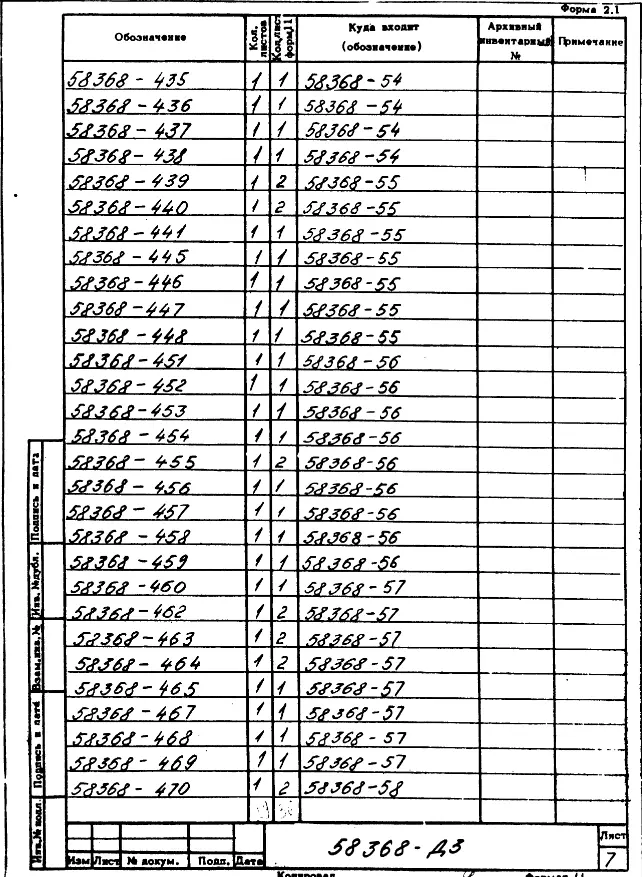 Форма 2.1
Обозначение Кол. листов Кол. лист форм. 11 Куда входит (обозначение) Архивный инвентарный № Примечание
58368 - 435 1 1 58368 - 54
58368 - 436 1 1 58368 - 54
58368 - 437 1 1 58368 - 54
58368 - 438 1 1 58368 - 54
58368 - 439 1 2 58368 - 55
58368 - 440 1 2 58368 - 55
58368 - 441 1 1 58368 - 55
58368 - 445 1 1 58368 - 55
58368 - 446 1 1 58368 - 55
58368 - 447 1 1 58368 - 55
58368 - 448 1 1 58368 - 55
58368 - 451 1 1 58368 - 56
58368 - 452 1 1 58368 - 56
58368 - 453 1 1 58368 - 56
58368 - 454 1 1 58368 - 56
58368 - 455 1 2 58368 - 56
58368 - 456 1 1 58368 - 56
58368 - 457 1 1 58368 - 56
58368 - 458 1 1 58368 - 56
58368 - 459 1 1 58368 - 56
58368 - 460 1 1 58368 - 57
58368 - 462 1 2 58368 - 57
58368 - 463 1 2 58368 - 57
58368 - 464 1 2 58368 - 57
58368 - 465 1 1 58368 - 57
58368 - 467 1 1 58368 - 57
58368 - 468 1 1 58368 - 57
58368 - 469 1 1 58368 - 57
58368 - 470 1 2 58368 - 58
Подпись и дата
Инв. № дубл.
Взам. инв. №
Подпись и дата
Инв. № подл.
58368 - Д3
Лист
7
Изм Лист № докум. Подп. Дата
Копировал Формат 11